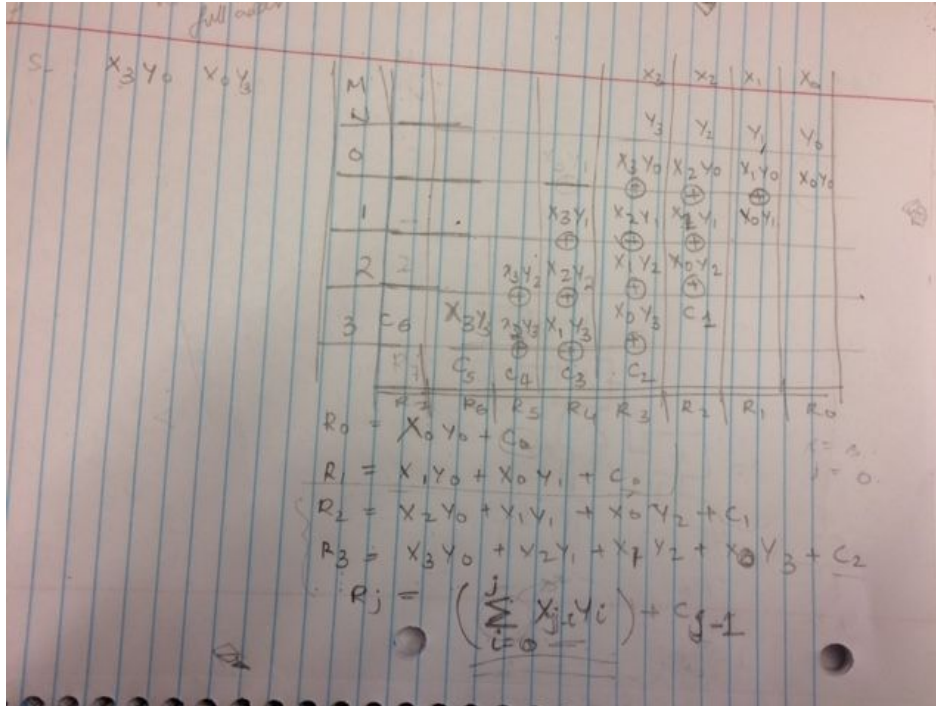 full adder
S- X3Y0 X0Y3
M X3 X2 X1 X0
N Y3 Y2 Y1 Y0
0 X3Y0 X2Y0 X1Y0 X0Y0
⊕ ⊕ ⊕
1 X3Y1 X2Y1 X1Y1 X0Y1
⊕ ⊕ ⊕
2 2 X3Y2 X2Y2 X1Y2 X0Y2
⊕ ⊕ ⊕ ⊕
3 C6 X3Y3 X2Y3 X1Y3 X0Y3 C1
⊕ ⊕ ⊕
R7 C5 C4 C3 C2
R7 R6 R5 R4 R3 R2 R1 R0
R0 = X0Y0 + C0
R1 = X1Y0 + X0Y1 + C0
R2 = X2Y0 + X1Y1 + X0Y2 + C1
R3 = X3Y0 + X2Y1 + X1Y2 + X0Y3 + C2
Rj = (∑ j i=0 Xj-iYi) + Cj-1